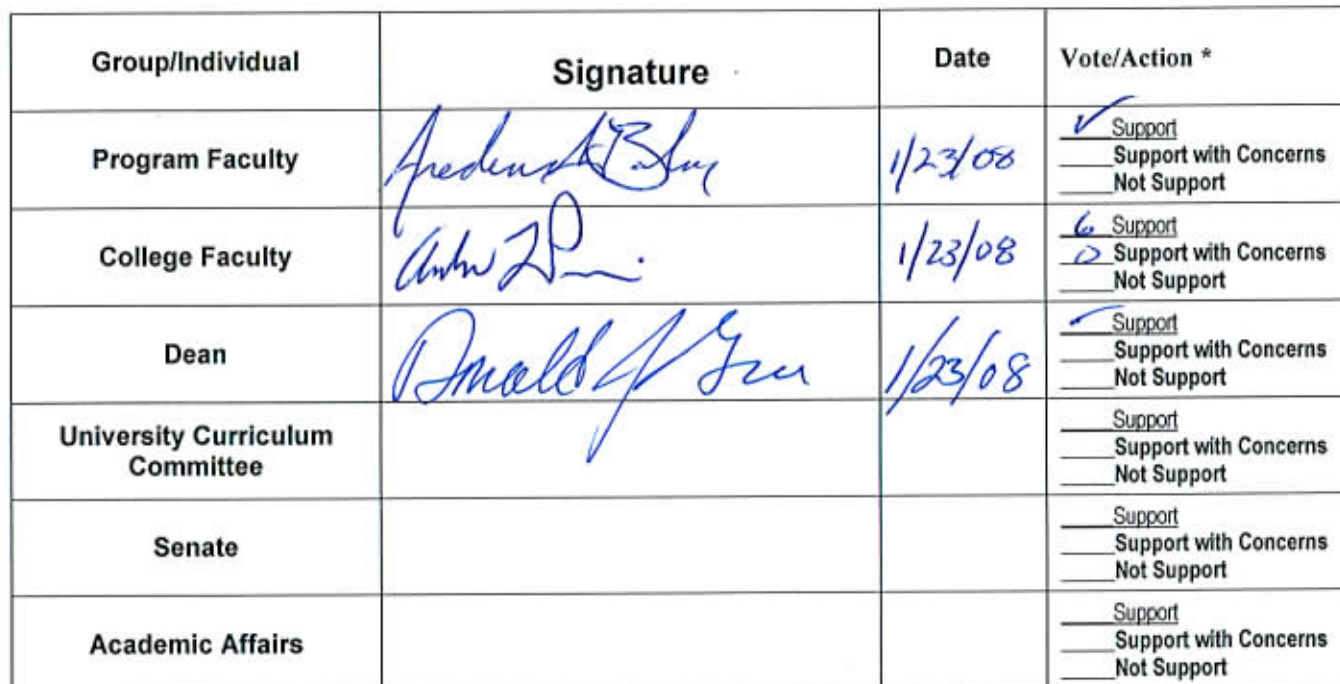 Group/Individual Signature Date Vote/Action *
Program Faculty 1/23/08 ✓ Support
Support with Concerns
Not Support
College Faculty 1/23/08 6 Support
0 Support with Concerns
Not Support
Dean Donald J 1/23/08 ✓ Support
Support with Concerns
Not Support
University Curriculum
Committee
Support
Support with Concerns
Not Support
Senate
Support
Support with Concerns
Not Support
Academic Affairs
Support
Support with Concerns
Not Support